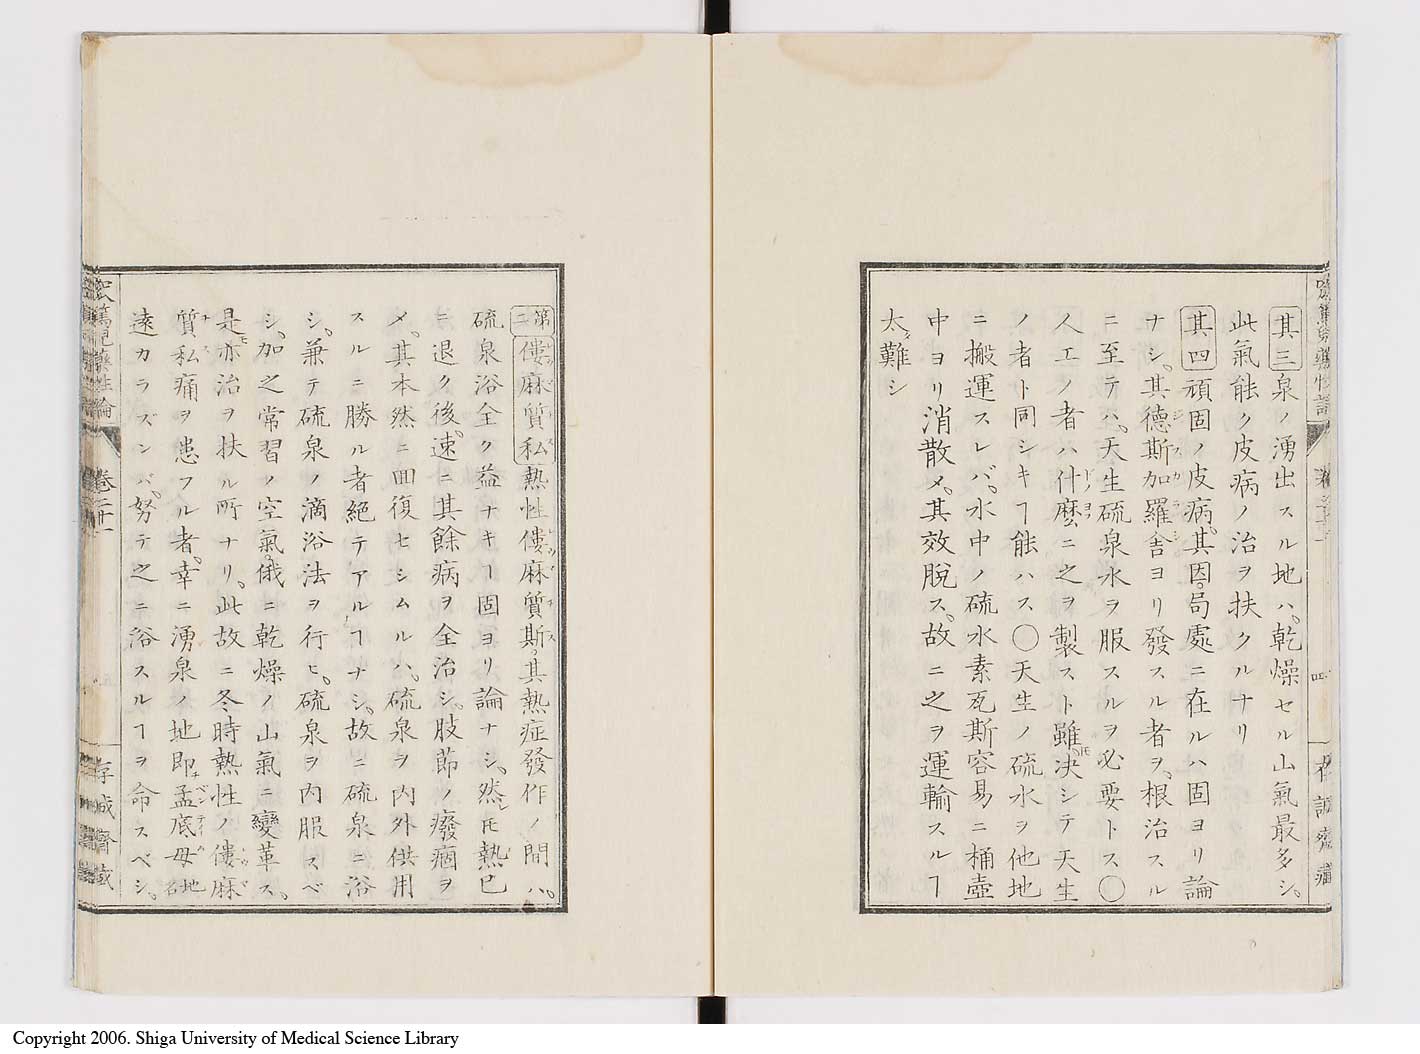 其三泉ノ湧出スル地ハ、乾燥セル山氣最多シ、
此氣能ク皮病ノ治ヲ扶クルナリ
其四頑固ノ皮病、其因局處ニ在ルハ固ヨリ論
ナシ、其德斯加羅舎ヨリ發スル者ヲ、根治スル
ニ至テハ、天生硫泉水ヲ服スルヲ必要トス〇
人工ノ者ハ什麽ニ之ヲ製スト雖𪜈決シテ天生
ノ者ト同シキヿ能ハス〇天生ノ硫水ヲ他地
ニ搬運スレバ、水中ノ硫水素瓦斯容易ニ桶壺
中ヨリ消散メ、其效脫ス、故ニ之ヲ運輸スルヿ
太タ難シ
四
存誠齋藏
第二僂麻質私熱性僂麻質斯、其熱症發作ノ間ハ、
硫泉浴全ク益ナキヿ固ヨリ論ナシ、然レ𪜈熱已
ニ退ク後、速ニ其餘病ヲ全治シ、肢節ノ癈痼ヲ
メ、其本然ニ回復セシムルハ、硫泉ヲ内外供用
スルニ勝ル者絕テアルヿナシ、故ニ硫泉ニ浴
シ、兼テ硫泉ノ滴浴法ヲ行ヒ、硫泉ヲ内服スベ
シ、加之常習ノ空氣、俄ニ乾燥ノ山氣ニ變革ス、
是モ亦治ヲ扶ル所ナリ、此故ニ冬時熱性ノ僂麻
質私痛ヲ患フル者、幸ニ湧泉ノ地即チ孟底母地名
遠カラズンバ、努テ之ニ浴スルヿヲ命スベシ、
藥性論
卷二十一
Copyright 2006. Shiga University of Medical Science Library